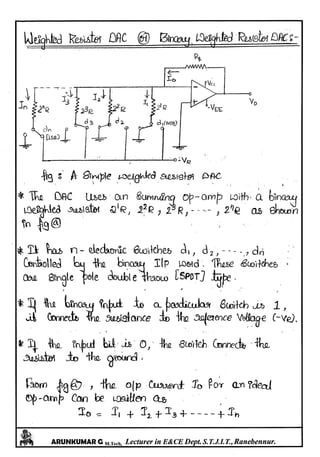 Weighted Resistor DAC (or) Binary Weighted Resistor DAC:-
Rf
Io
+Vcc
Vo
-VEE
In
I3
I2
I1
2ⁿR
2³R
2²R
2¹R
dn
(LSB)
d3
d2
d1(MSB)
-VR
fig a: A Simple weighted resistor DAC
* The DAC uses an summing op-amp with a binary
weighted resistor 2¹R, 2²R, 2³R, ----, 2ⁿR as shown
in fig (a)
* It has n- electronic switches d1, d2, ----, dn
Controlled by the binary I/p word. These switches
are Single pole double throw [SPDT] type.
* If the binary input to a particular switch is 1,
it Connects the resistance to the reference Voltage (-Ve).
* If the input bit is 0, the switch Connects the
resistor to the ground.
From fig (a), the o/p Current Io for an ideal
op-amp Can be written as
Io = I1 + I2 + I3 + ---- + In
ARUNKUMAR G M.Tech, Lecturer in E&CE Dept. S.T.J.I.T., Ranebennur.